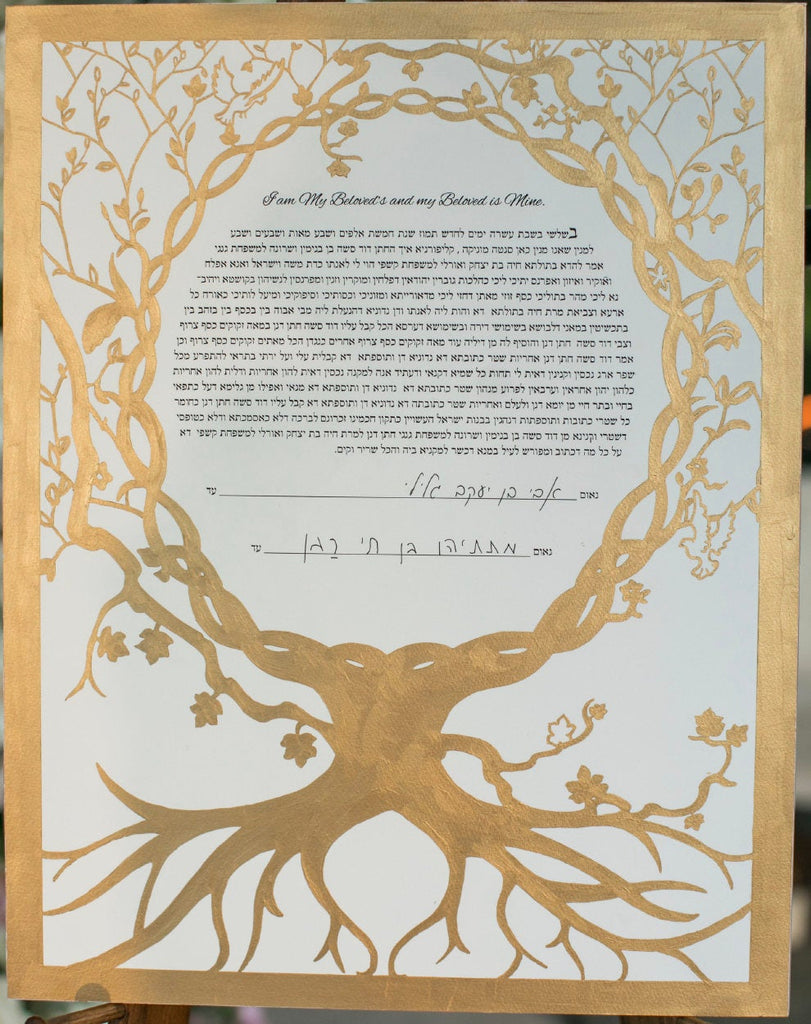 I am My Beloved's and my Beloved is Mine.
בשלישי בשבת עשרה ימים לחדש תמוז שנת חמשת אלפים ושבע מאות ושבעים ושבע
למנין שאנו מנין כאן סנטה מוניקה , קליפורניא איך החתן דוד סשה בן בנימין ושרונה למשפחת גנני
אמר להדא בתולתא חיה בת יצחק ואורלי למשפחת קשפי הוי לי לאנתו כדת משה וישראל ואנא אפלח
ואוקיר ואיזון ואפרנס יתיכי ליכי כהלכות גוברין יהודאין דפלחין ומוקרין וזנין ומפרנסין לנשיהון בקושטא ויהיב־
נא ליכי מהר בתוליכי כסף זוזי מאתן דחזי ליכי מדאורייתא ומזוניכי וכסותיכי וסיפוקיכי ומיעל לותיכי כאורח כל
ארעא וצביאת מרת חיה בתולתא דא והות ליה לאנתו ודן נדוניא דהנעלת ליה מבי אבוה בין בכסף בין בזהב בין
בתכשיטין במאני דלבושא בשימושי דירה ובשימושא דערסא הכל קבל עליו דוד סשה חתן דנן במאה זקוקים כסף צרוף
וצבי דוד סשה חתן דנן והוסיף לה מן דיליה עוד מאה זקוקים כסף צרוף אחרים כנגדן הכל מאתים זקוקים כסף צרוף וכן
אמר דוד סשה חתן דנן אחריות שטר כתובתא דא נדוניא דן ותוספתא דא קבלית עלי ועל ירתי בתראי להתפרע מכל
שפר ארג נכסין וקנינין דאית לי תחות כל שמיא דקנאי ודעתיד אנה למקנה נכסין דאית להון אחריות ודלית להון אחריות
כלהון יהון אחראין וערבאין לפרוע מנהון שטר כתובתא דא נדוניא דן ותוספתא דא מנאי ואפילו מן גלימא דעל כתפאי
בחיי ובתר חיי מן יומא דנן ולעלם ואחריות שטר כתובתה דא נדוניא דן ותוספתא דא קבל עליו דוד סשה חתן דנן כחומר
כל שטרי כתובות ותוספתות דנהגין בבנות ישראל העשוין כתקון חכמינו זכרונם לברכה דלא כאסמכתא ודלא כטופסי
דשטרי וקנינא מן דוד סשה בן בנימין ושרונה למשפחת גנני חתן דנן למרת חיה בת יצחק ואורלי למשפחת קשפי דא
על כל מה דכתוב ומפורש לעיל במנא דכשר למקניא ביה והכל שריר וקים.
נאום אבי בן יעקב גלילי עד
נאום מתתיהו בן חי דגן עד